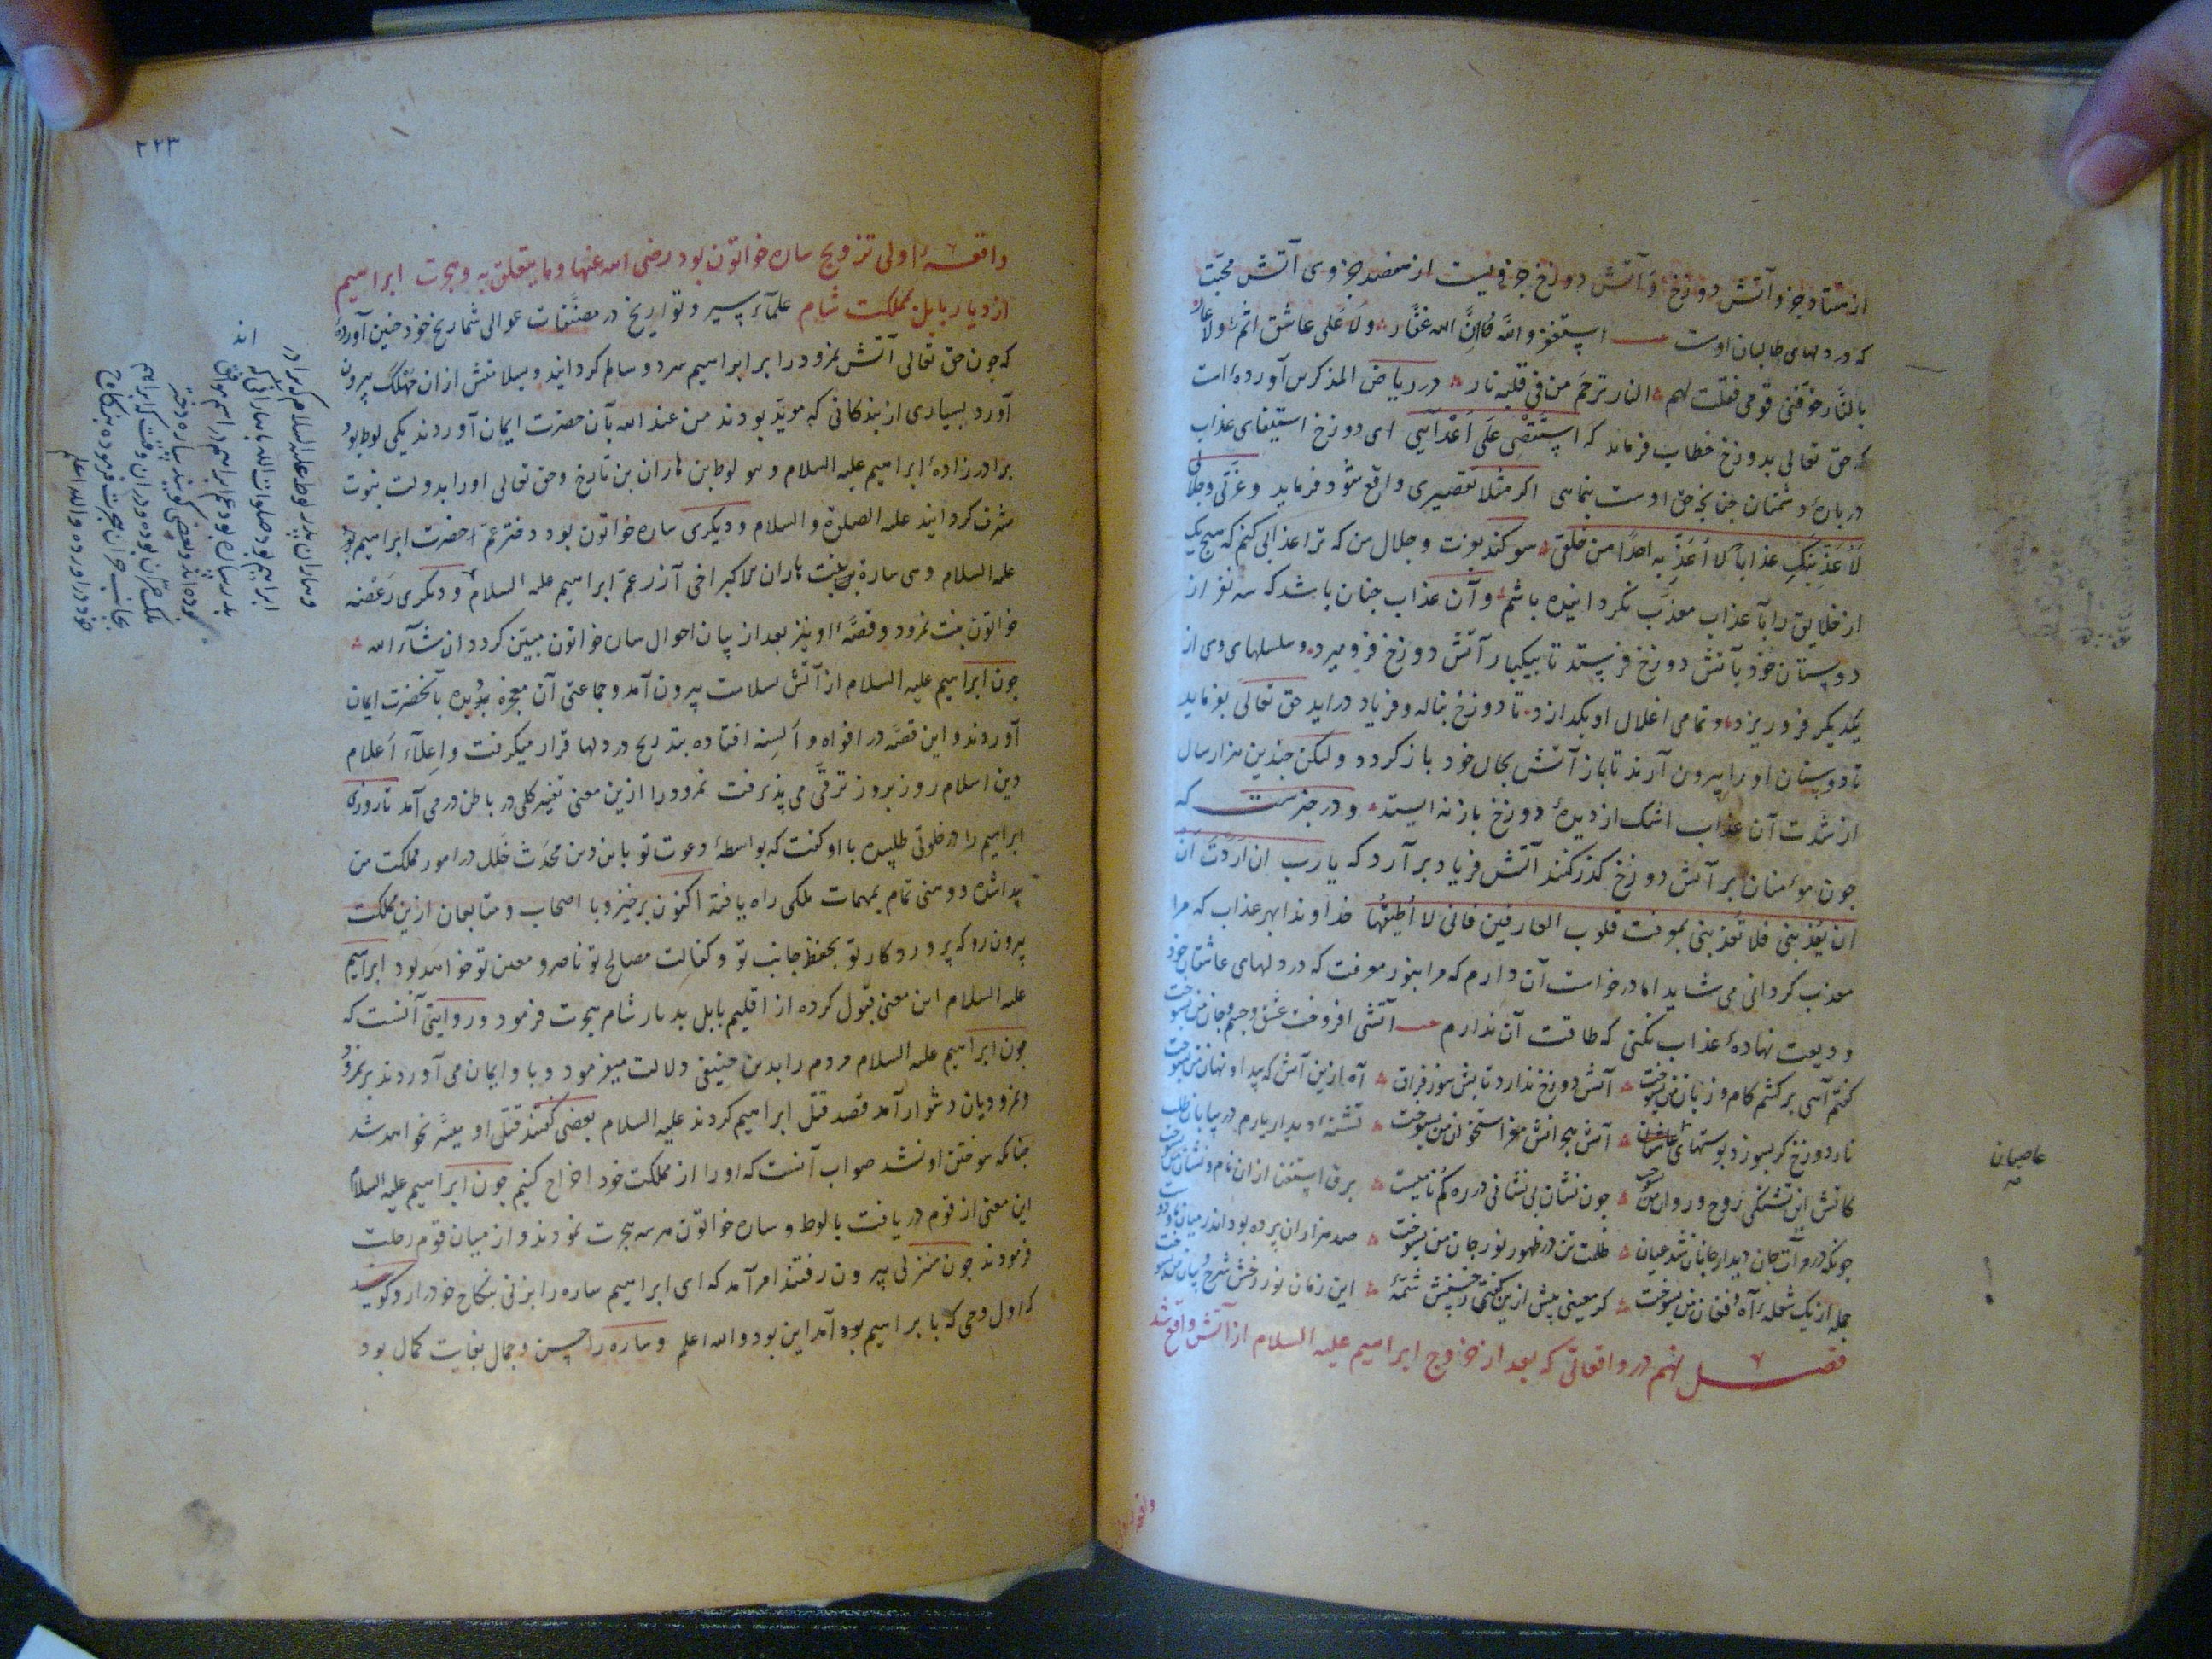 از هفتاد جزو آتش دوزخ و آتش دوزخ جزویست از هفتصد جزوی آتش محبّت
که در دلهای طالبان اوست استغفر والله فانّ الله غفّار ولا علی عاشق اثم ولا عار
بالنّار خوّفنی قومی فقلت لهم النار ترحم من فی قلبه نار در ریاض المذکرین آورده است
که حق تعالی بدوزخ خطاب فرماید که استقصی علی اعدائی ای دوزخ استیفای عذاب
دربارهٔ دشمنان چنانچه حق اوست بنمای اکر مثلا تقصیری واقع شود فرماید وعزّتی وجلالی
لاعذّبنّک عذاباً لا اعذّبه احدًا من خلقی سوکند بعزت و جلال من که ترا عذابی کنم که هیچ یک
از خلایق را بآن عذاب معذّب نکردانیده باشم و آن عذاب چنان باشد که سه نفر از
دوستان خود بآتش دوزخ فرستد تا بیکبار آتش دوزخ فرو میرد و سلسلهای وی از
یکدیکر فرو ریزد و تمامی اغلال او بکدازد تا دوزخ بناله و فریاد دراید حق تعالی بفرماید
تا دوستان او را بیرون آرند تا باز آتش بحال خود بازکردد ولیکن چندین هزار سال
از شدت آن عذاب اشک از دیدهٔ دوزخ باز نه ایستد و در خبرست که
چون مؤمنان بر آتش دوزخ کذر کنند آتش فریاد برآرد که یا رب ان اردت ان
ان تعذبنی فلا تعذبنی بمعرفت قلوب العارفین فانی لا اطیقها خداوندا بهر عذاب که مرا
معذب کردانی می شاید اما درخواست آن دارم که مرا بنور معرفت که در دلهای عاشقان خود
ودیعت نهادهٔ عذاب نکنی که طاقت آن ندارم آتشی افروخت عشق و جسم و جان من بسوخت
کفتم آهی برکشم کام و زبان من بسوخت آتش دوزخ ندارد تابش سوز فراق آه ازین آتش که پیدا و نهان من بسوخت
نار دوزخ کر بسوزد پوستهای عاشقان آتش هجرانش مغز استخوان من بسوخت تشنهٔ دیدار یارم در بیابان طلب
کاتش این تشنکی روح و روان من بسوخت چون نشان بی نشانی در ره کم نامیست برق استغنا ازان نام و نشان من بسوخت
چونکه در مرآت جان دیدار جانان شد عیان ظلمت تن در ظهور نور جان من بسوخت صد هزاران پرده بود اندر میان ما و دوست
جمله از یک شعلهٔ آه و فغان من بسوخت کر معینی پیش ازین کفتی ز حسنش شمّهٔ این زمان نور رخش شرح و بیان من بسوخت
فصل نهم در واقعاتی که بعد از خروج ابراهیم علیه السلام از آتش واقع شد
عاصیان
واقعهٔ اولی
۲۲۳
واقعهٔ اولی تزویج ساره خواتون بود رضی الله عنها و ما یتعلق به و هجرت ابراهیم
از دیار بابل بمملکت شام علمآء سیر و تواریخ در مصنّفات عوالی شماریخ خود چنین آورده
که چون حق تعالی آتش نمرود را بر ابراهیم سرد و سالم کردانید و بسلامتش ازان مهلکه بیرون
آورد بسیاری از بندکانی که مویّد بودند من عند الله بآن حضرت ایمان آوردند یکی لوط بود
برادرزادهٔ ابراهیم علیه السلام و هو لوط بن هاران بن تارخ و حق تعالی او را بدولت نبوت
مشرف کردانید علیه الصلوة والسلام و دیکری ساره خواتون بود دختر عمّ حضرت ابراهیم بود
علیه السلام و هی سارة بنت هاران الاکبر اخی آزر عمّ ابراهیم علیه السلام و دیکری رعضه
خواتون بنت نمرود و قصّهٔ او نیز بعد از بیان احوال ساره خواتون مبیّن کردد ان شآء الله
چون ابراهیم علیه السلام از آتش بسلامت بیرون آمد و جماعتی آن معجزه بدیده بآنحضرت ایمان
آوردند و این قصّه در افواه و السنه افتاده بتدریج در دلها قرار میکرفت و اعلآء اعلام
دین اسلام روز بروز ترقی می پذیرفت نمرود را ازین معنی تغیّر کلی در باطن در می آمد تا روزی
ابراهیم را در خلوتی طلبیده با او کفت که بواسطهٔ دعوت تو باین دین محدَث خلل در امور مملکت من
پیدا شده و وهنی تمام بمهمات ملکی راه یافته اکنون برخیز و با اصحاب و متابعان ازین مملکت
بیرون رو که پروردکار تو بحفظ جانب تو و کفالت مصالح تو ناصر و معین تو خواهد بود ابراهیم
علیه السلام این معنی قبول کرده از اقلیم بابل بدیار شام هجرت فرمود و روایتی آنست که
چون ابراهیم علیه السلام مردم را بدین حنیفی دلالت میفرمود و باو ایمان می آوردند بر نمرود
و نمرودیان دشوار آمد قصد قتل ابراهیم کردند علیه السلام بعضی کفتند قتل او میسّر نخواهد شد
چنانکه سوختن او نشد صواب آنست که او را از مملکت خود اخراج کنیم چون ابراهیم علیه السلام
این معنی از قوم دریافت با لوط و ساره خواتون هر سه هجرت نمودند و از میان قوم رحلت
فرمودند چون منزلی بیرون رفتند امر آمد که ای ابراهیم ساره را بزنی بنکاح خود درار و کویند
که اول وحی که بابراهیم بود آمد این بود والله اعلم و ساره را حسن و جمال بغایت کمال بود
و هاران پدر لوط علیه السلام که برادر
ابراهیم بود صلوات الله با هارانی که
پدر ساره بود عم ابراهیم در اسم موافق اند
بوده اند و بعضی کویند ساره دختر
ملک حرّان بوده و در ان وقت که ابراهیم
بجانب حران هجرت فرموده بنکاح
خود دراورده والله اعلم